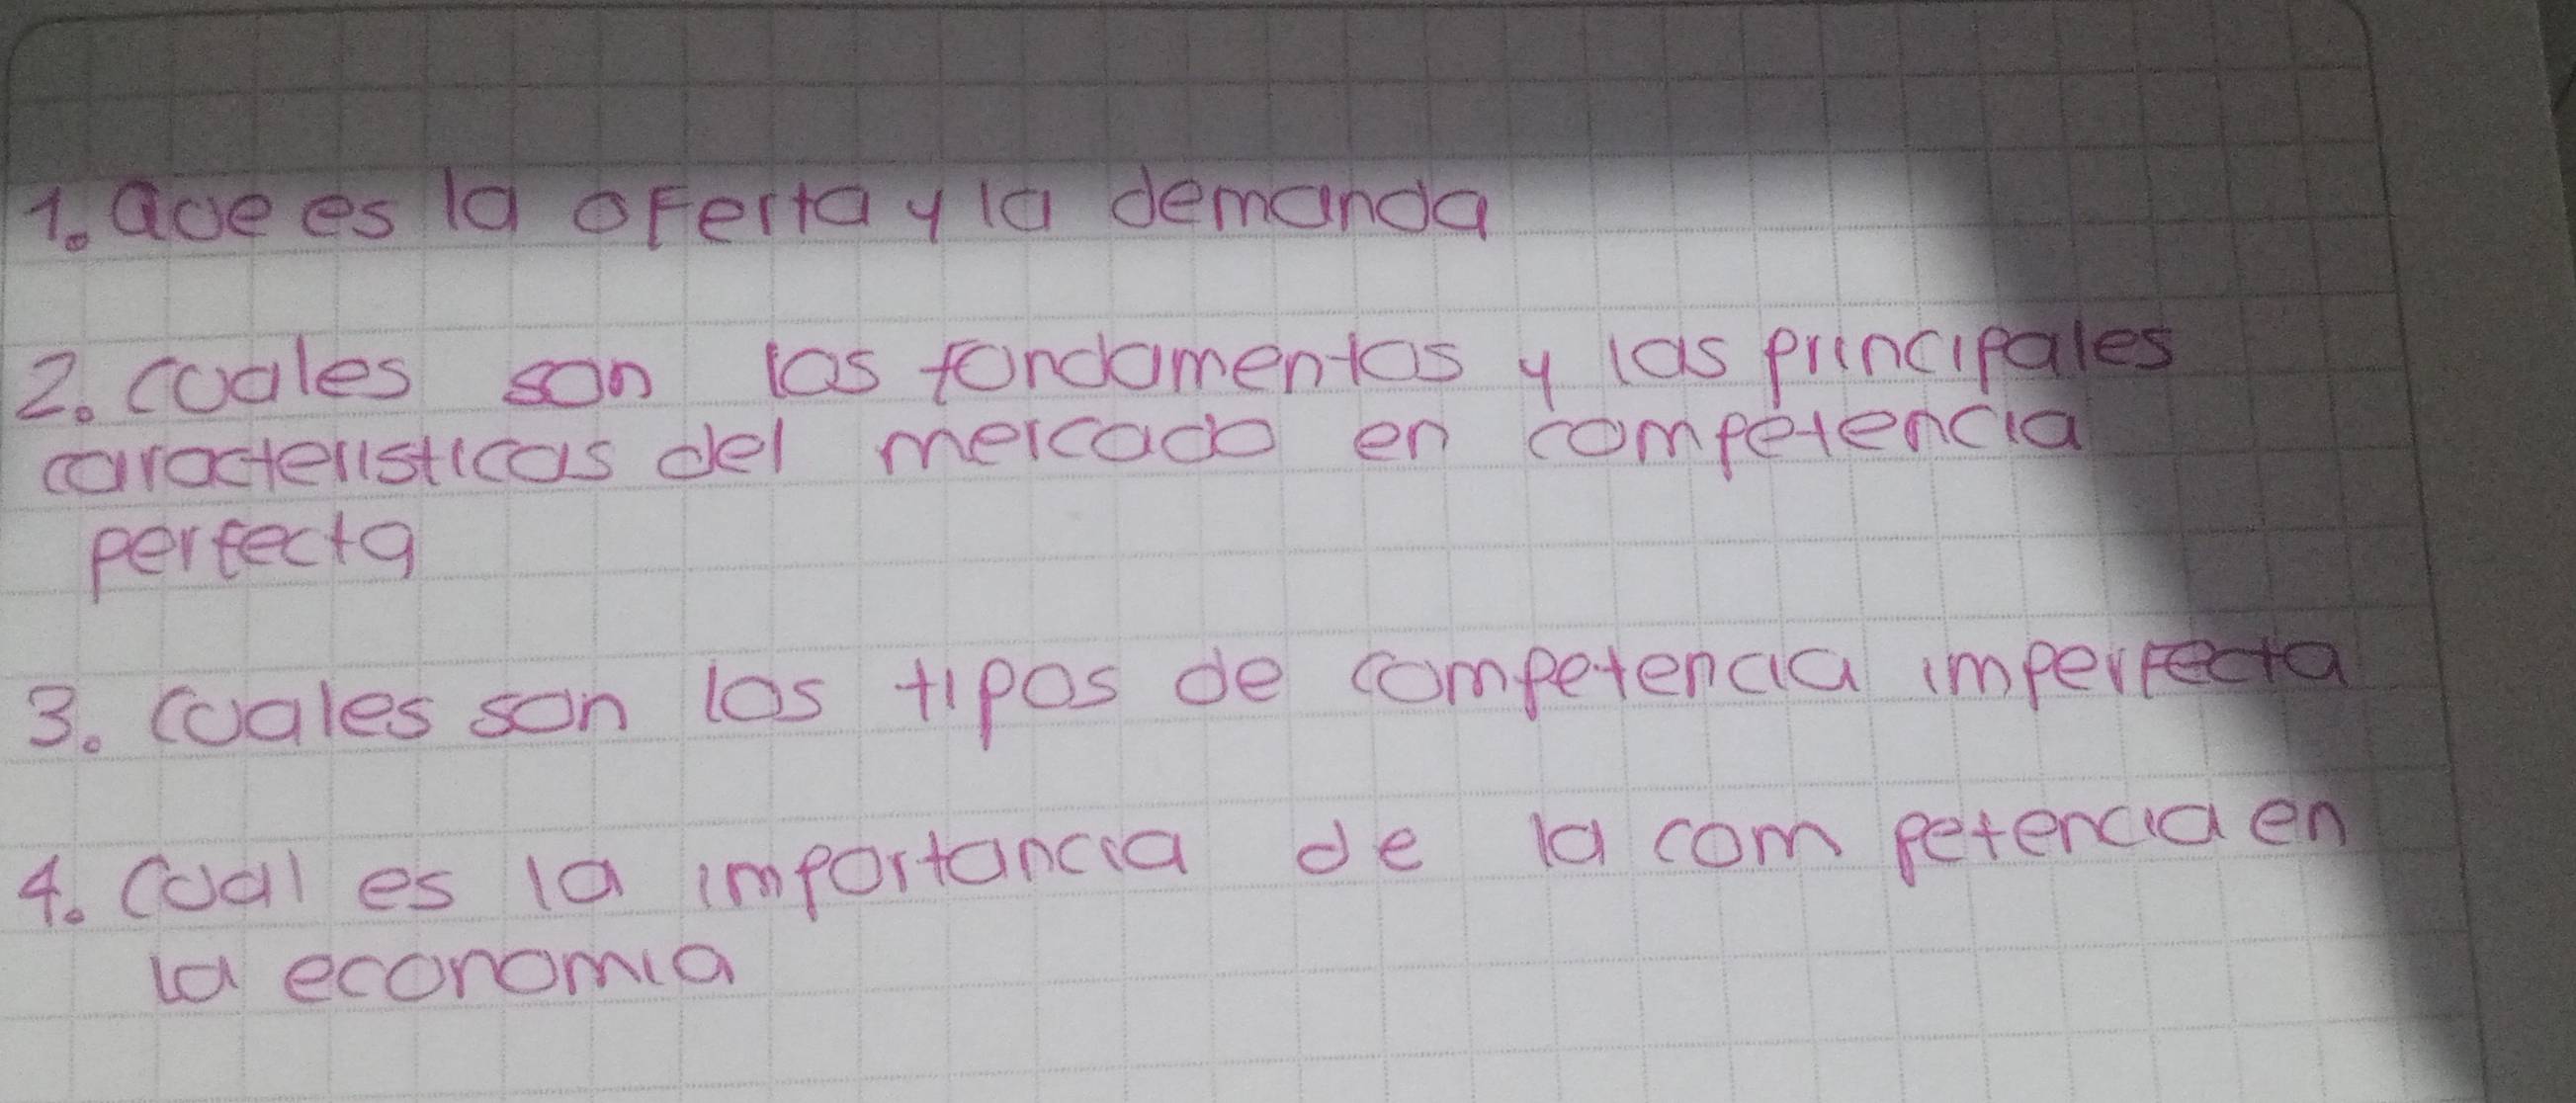 1. Que es la oferta y la demanda
2. cuales son los fundamentos y las principales
caracteristicas del mercado en competencia
perfecta
3. cuales son los tipos de competencia imperfecta
4. Cual es la importancia de la com petencia en
la economia